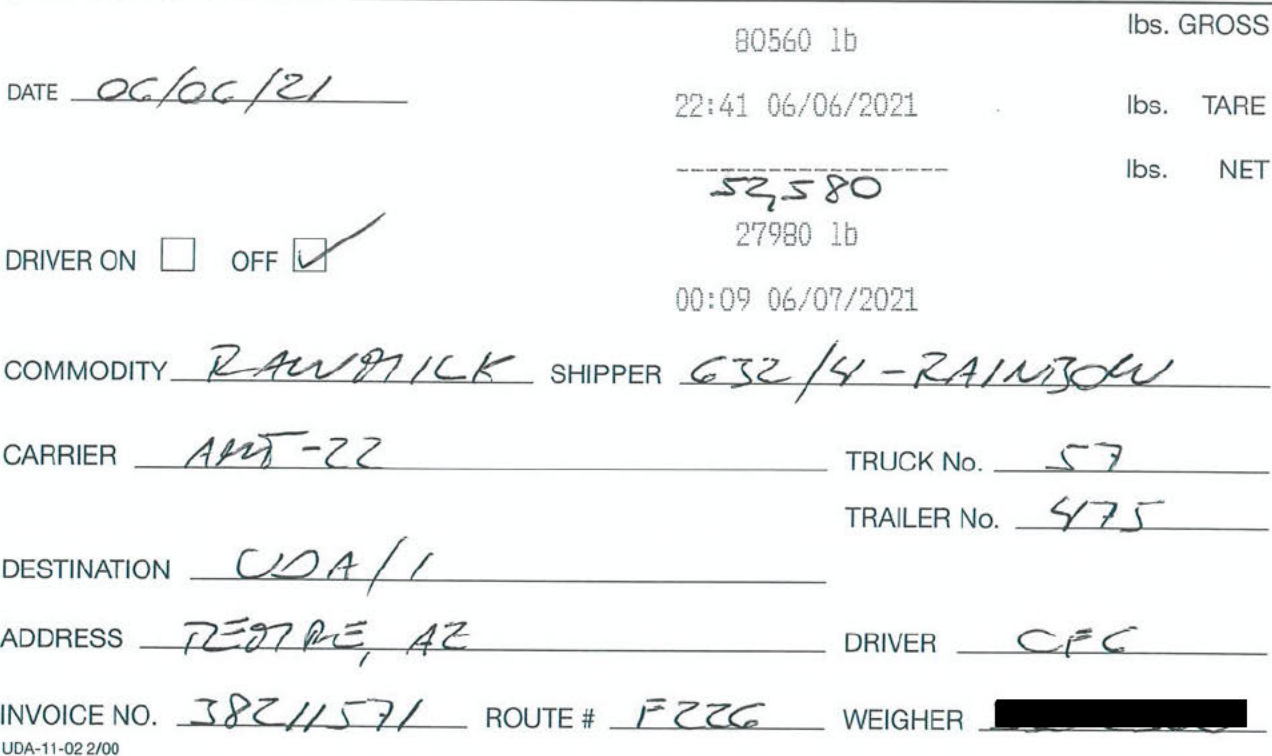 80560 lb lbs. GROSS
DATE 06/06/21
22:41 06/06/2021 lbs. TARE
lbs. NET
52,580
27980 lb
DRIVER ON OFF
00:09 06/07/2021
COMMODITY RAW MILK SHIPPER 632/4-RAINBOW
CARRIER AMT-22 TRUCK No. 57
TRAILER No. 475
DESTINATION UDA/1
ADDRESS TEMPE, AZ DRIVER
INVOICE NO. 38211571 ROUTE # F226 WEIGHER
UDA-11-02 2/00